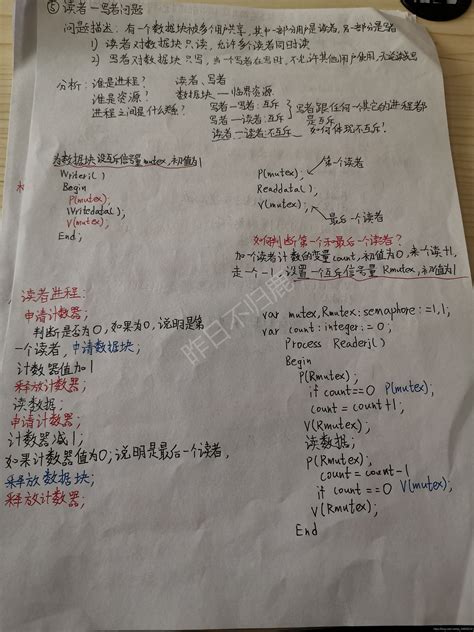 ⑤ 读者—写者问题
问题描述：有一个数据块被多个用户共享，其中一部分用户是读者，另一部分是写者
1) 读者对数据块只读，允许多个读者同时读
2) 写者对数据块只写，当一个写者在写时，不允许其他用户使用，无论读写
分析：谁是进程？ 读者、写者
谁是资源？ 数据块—临界资源
进程之间是什么关系？ 写者—写者：互斥
写者—读者：互斥
读者—读者：不互斥
写者跟任何一个其它的进程都是互斥
如何体现不互斥
为数据块设互斥信号量mutex，初值为1
Writeri()
Begin
P(mutex);
Writedata();
V(mutex);
End;
P(mutex); 第一个读者
Readdata();
V(mutex); 最后一个读者
如何判断第一个和最后一个读者？
加一个读者计数的变量count，初值为0，来一个读+1，
走一个-1，设置一个互斥信号量Rmutex，初值为1
读者进程：
申请计数器；
判断是否为0，如果为0，说明是第
一个读者，申请数据块；
计数器值加1
释放计数器；
读数据；
申请计数器；
计数器减1；
如果计数器值为0；说明是最后一个读者，
释放数据块；
释放计数器；
var mutex,Rmutex:semaphore:=1,1;
var count:integer:=0;
Process Readerj()
Begin
P(Rmutex);
if count==0 P(mutex);
count=count+1;
V(Rmutex);
读数据；
P(Rmutex);
count=count-1
if count==0 V(mutex);
V(Rmutex);
End
昨日不归鹿